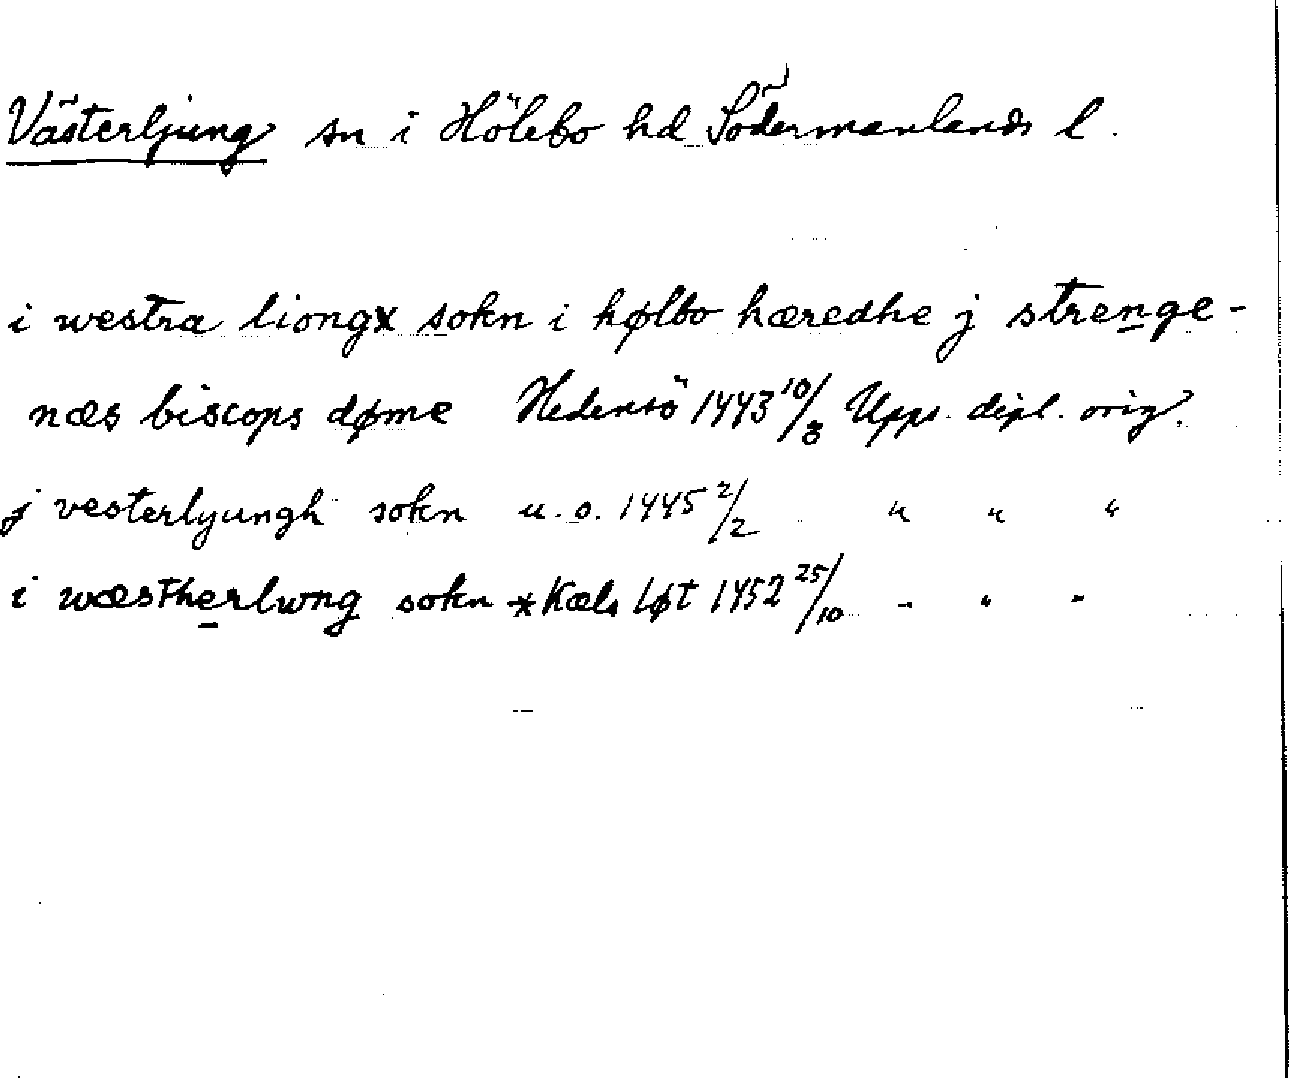 Västerljung sn i Hölebo hd Södermanlands l.
i westra liongx sokn i hølbo hæredhe j strenge-
næs biscops døme Hedensö 1443 10/8 Upps. dipl. orig.
j vesterlyungh sokn u.o. 1445 2/2 " " "
i wæstherlwng sokn *Kæla løt 1452 25/10 " " "